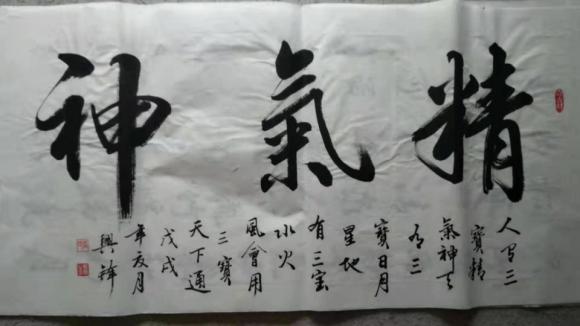 精氣神
人有三
寶精
氣神天
有三
寶日月
星地
有三宝
水火
風會用
三寶
天下通
戊戌
年 月
興鋒